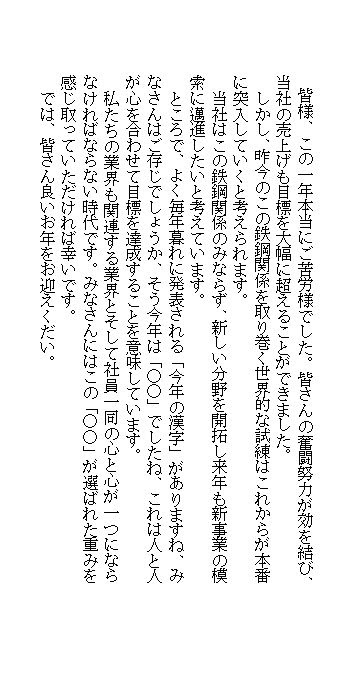 皆様、この一年本当にご苦労様でした。皆さんの奮闘努力が効を結び、
当社の売上げも目標を大幅に超えることができました。
　しかし、昨今のこの鉄鋼関係を取り巻く世界的な試練はこれからが本番
に突入していくと考えられます。
　当社はこの鉄鋼関係のみならず、新しい分野を開拓し来年も新事業の模
索に邁進したいと考えています。
　ところで、よく毎年暮れに発表される「今年の漢字」がありますね、み
なさんはご存じでしょうか、そう今年は「〇〇」でしたね、これは人と人
が心を合わせて目標を達成することを意味しています。
　私たちの業界も関連する業界とそして社員一同の心と心が一つになら
なければならない時代です。みなさんにはこの「〇〇」が選ばれた重みを
感じ取っていただければ幸いです。
　では、皆さん良いお年をお迎えくだい。